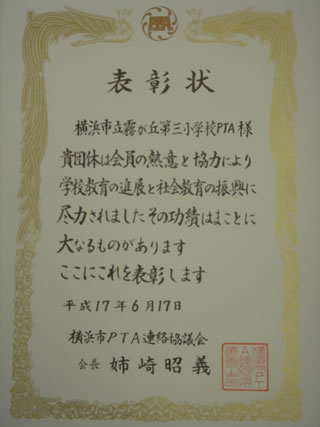 表彰状
横浜市立霧が丘第三小学校PTA 様
貴団体は会員の熱意と協力により
学校教育の進展と社会教育の振興に
尽力されましたその功績はまことに
大なるものがあります
ここにこれを表彰します
平成17年6月17日
横浜市PTA連絡協議会
会長 姉崎昭義